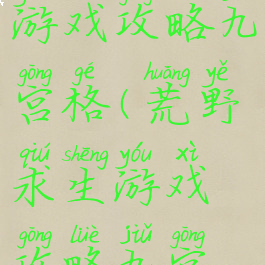 游戏攻略九
gōng gé huāng yě
宫格(荒野
qiú shēng yóu xì
求生游戏
gōng lüè jiǔ gōng
攻略九宫